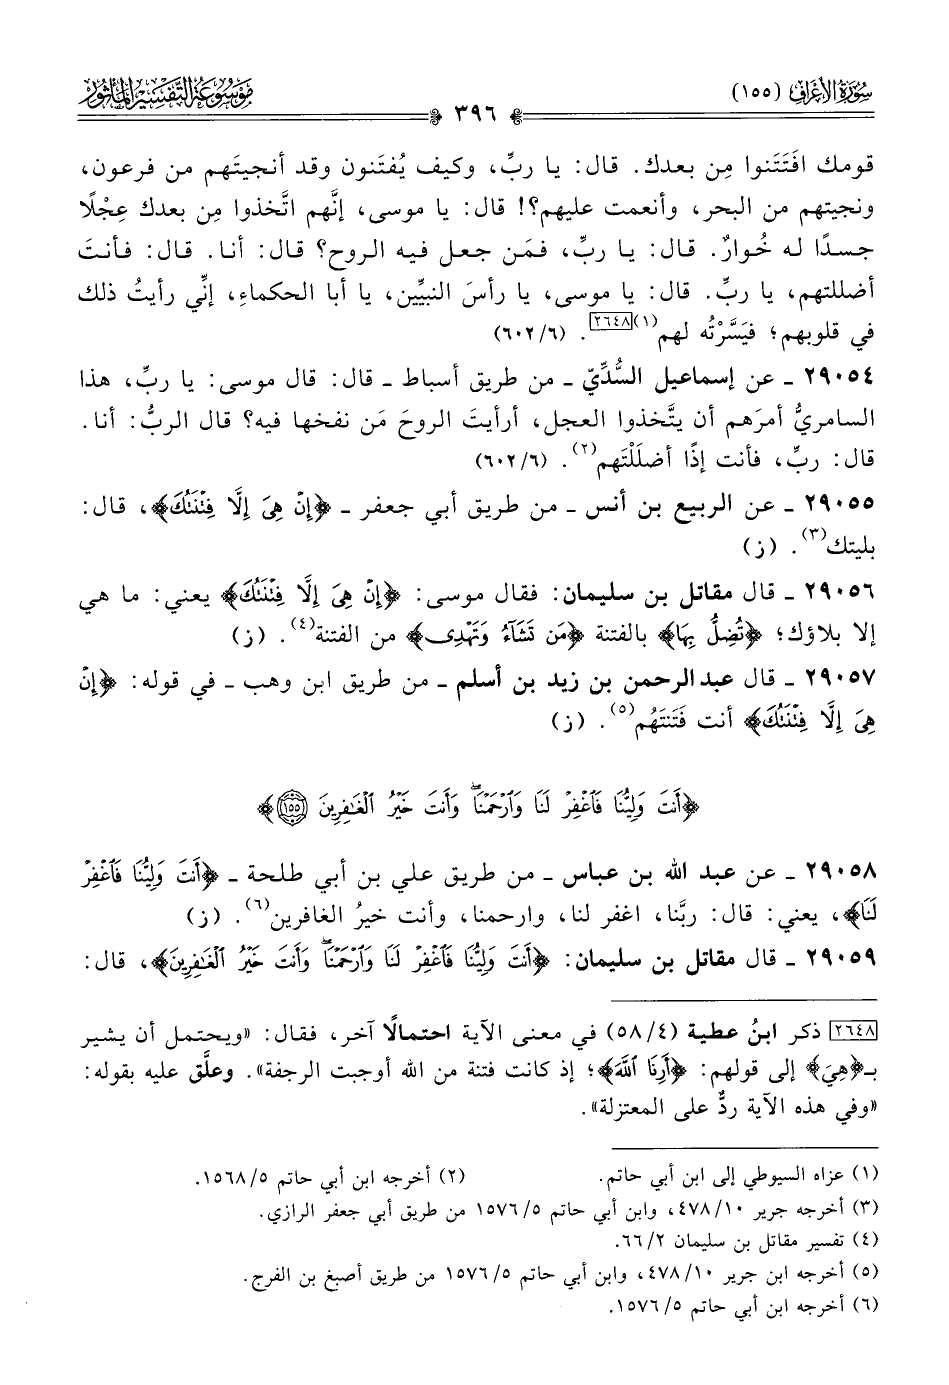 سُورَةُ الأَعْرَافِ (١٥٥)
٣٩٦
مَوْسُوعَةُ التَّفْسِيرِ المَأْثُورِ
قومك افتَتَنوا مِن بعدك. قال: يا ربِّ، وكيف يُفتَنون وقد أنجيتَهم من فرعون،
ونجيتهم من البحر، وأنعمت عليهم؟! قال: يا موسى، إنَّهم اتَّخذوا مِن بعدك عِجْلًا
جسدًا له خُوارٌ. قال: يا ربِّ، فمَن جعل فيه الروح؟ قال: أنا. قال: فأنتَ
أضللتهم، يا ربِّ. قال: يا موسى، يا رأسَ النبيِّين، يا أبا الحكماءِ، إنِّي رأيتُ ذلك
في قلوبهم؛ فيَسَّرْتُه لهم(١)[٢٦٤٨]. (٦/٦٠٢)
٢٩٠٥٤ ـ عن إسماعيل السُّدِّيّ ـ من طريق أسباط ـ قال: قال موسى: يا ربِّ، هذا
السامريُّ أمرَهم أن يتَّخذوا العجل، أرأيتَ الروحَ مَن نفخها فيه؟ قال الربُّ: أنا.
قال: ربِّ، فأنت إذًا أضلَلْتَهم(٢). (٦/٦٠٢)
٢٩٠٥٥ ـ عن الربيع بن أنس ـ من طريق أبي جعفر ـ ﴿إِنْ هِىَ إِلَّا فِتْنَتُكَ﴾، قال:
بليتك(٣). (ز)
٢٩٠٥٦ ـ قال مقاتل بن سليمان: فقال موسى: ﴿إِنْ هِىَ إِلَّا فِتْنَتُكَ﴾ يعني: ما هي
إلا بلاؤك؛ ﴿تُضِلُّ بِهَا﴾ بالفتنة ﴿مَن تَشَآءُ وَتَهْدِى﴾ من الفتنة(٤). (ز)
٢٩٠٥٧ ـ قال عبدالرحمن بن زيد بن أسلم ـ من طريق ابن وهب ـ في قوله: ﴿إِنْ
هِىَ إِلَّا فِتْنَتُكَ﴾ أنت فَتَنتَهُم(٥). (ز)
﴿أَنتَ وَلِيُّنَا فَٱغْفِرْ لَنَا وَٱرْحَمْنَاۖ وَأَنتَ خَيْرُ ٱلْغَٰفِرِينَ ١٥٥﴾
٢٩٠٥٨ ـ عن عبد الله بن عباس ـ من طريق علي بن أبي طلحة ـ ﴿أَنتَ وَلِيُّنَا فَٱغْفِرْ
لَنَا﴾، يعني: قال: ربَّنا، اغفر لنا، وارحمنا، وأنت خيرُ الغافرين(٦). (ز)
٢٩٠٥٩ ـ قال مقاتل بن سليمان: ﴿أَنتَ وَلِيُّنَا فَٱغْفِرْ لَنَا وَٱرْحَمْنَاۖ وَأَنتَ خَيْرُ ٱلْغَٰفِرِينَ﴾، قال:
[٢٦٤٨] ذكر ابنُ عطية (٤/٥٨) في معنى الآية احتمالًا آخر، فقال: «ويحتمل أن يشير
بـ﴿هِيَ﴾ إلى قولهم: ﴿أَرِنَا ٱللَّهَ﴾؛ إذ كانت فتنة من الله أوجبت الرجفة». وعلَّق عليه بقوله:
«وفي هذه الآية ردٌّ على المعتزلة».
(١) عزاه السيوطي إلى ابن أبي حاتم. (٢) أخرجه ابن أبي حاتم ٥/١٥٦٨.
(٣) أخرجه جرير ١٠/٤٧٨، وابن أبي حاتم ٥/١٥٧٦ من طريق أبي جعفر الرازي.
(٤) تفسير مقاتل بن سليمان ٢/٦٦.
(٥) أخرجه ابن جرير ١٠/٤٧٨، وابن أبي حاتم ٥/١٥٧٦ من طريق أصبغ بن الفرج.
(٦) أخرجه ابن أبي حاتم ٥/١٥٧٦.